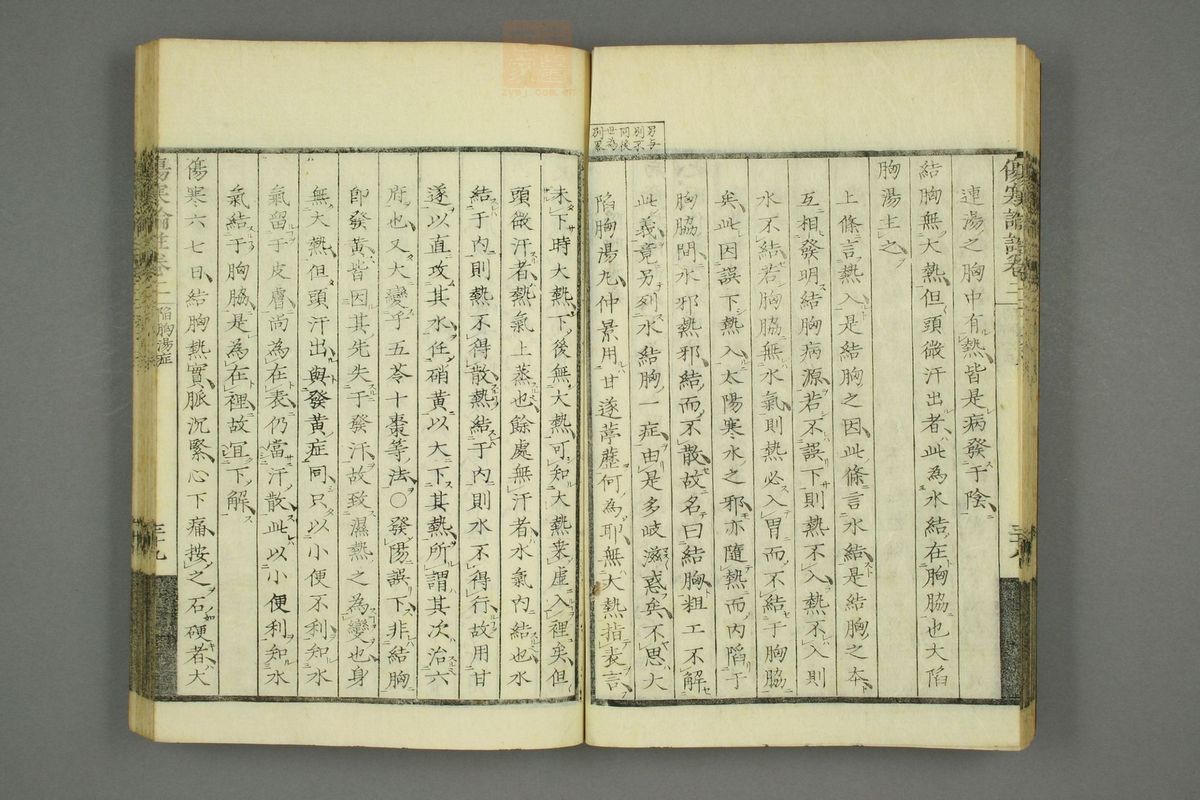 連湯之胸中有熱皆是病發于陰
結胸無大熱但頭微汗出者此為水結在胸脇也大陷
胸湯主之
上條言熱入是結胸之因此條言水結是結胸之本
互相發明結胸病源若不誤下則熱不入熱不入則
水不結若胸脇無水氣則熱必入胃而不結于胸脇
矣此因誤下熱入太陽寒水之邪亦隨熱而內陷于
胸脇間水邪熱邪結而不散故名曰結胸粗工不解
此義竟另列水結胸一症由是多岐滋惑矣不思大
陷胸湯丸仲景用甘遂葶藶何為耶無大熱指表言
未下時大熱下後無大熱可知大熱乘虛入裡矣但
頭微汗者熱氣上蒸也餘處無汗者水氣內結也水
結于內則熱不得散熱結于內則水不得行故用甘
遂以直攻其水任硝黃以大下其熱所謂其次治六
府也又大變乎五苓十棗等法〇發陽誤下非結胸
即發黃皆因其先失于發汗故致濕熱之為變也身
無大熱但頭汗出與發黃症同只以小便不利知水
氣留于皮膚尚為在表仍當汗散此以小便利知水
氣結于胸脇是為在裡故宜下解
傷寒六七日結胸熱實脈沉緊心下痛按之石硬者大
傷寒論註卷二
陷胸湯症
三十九